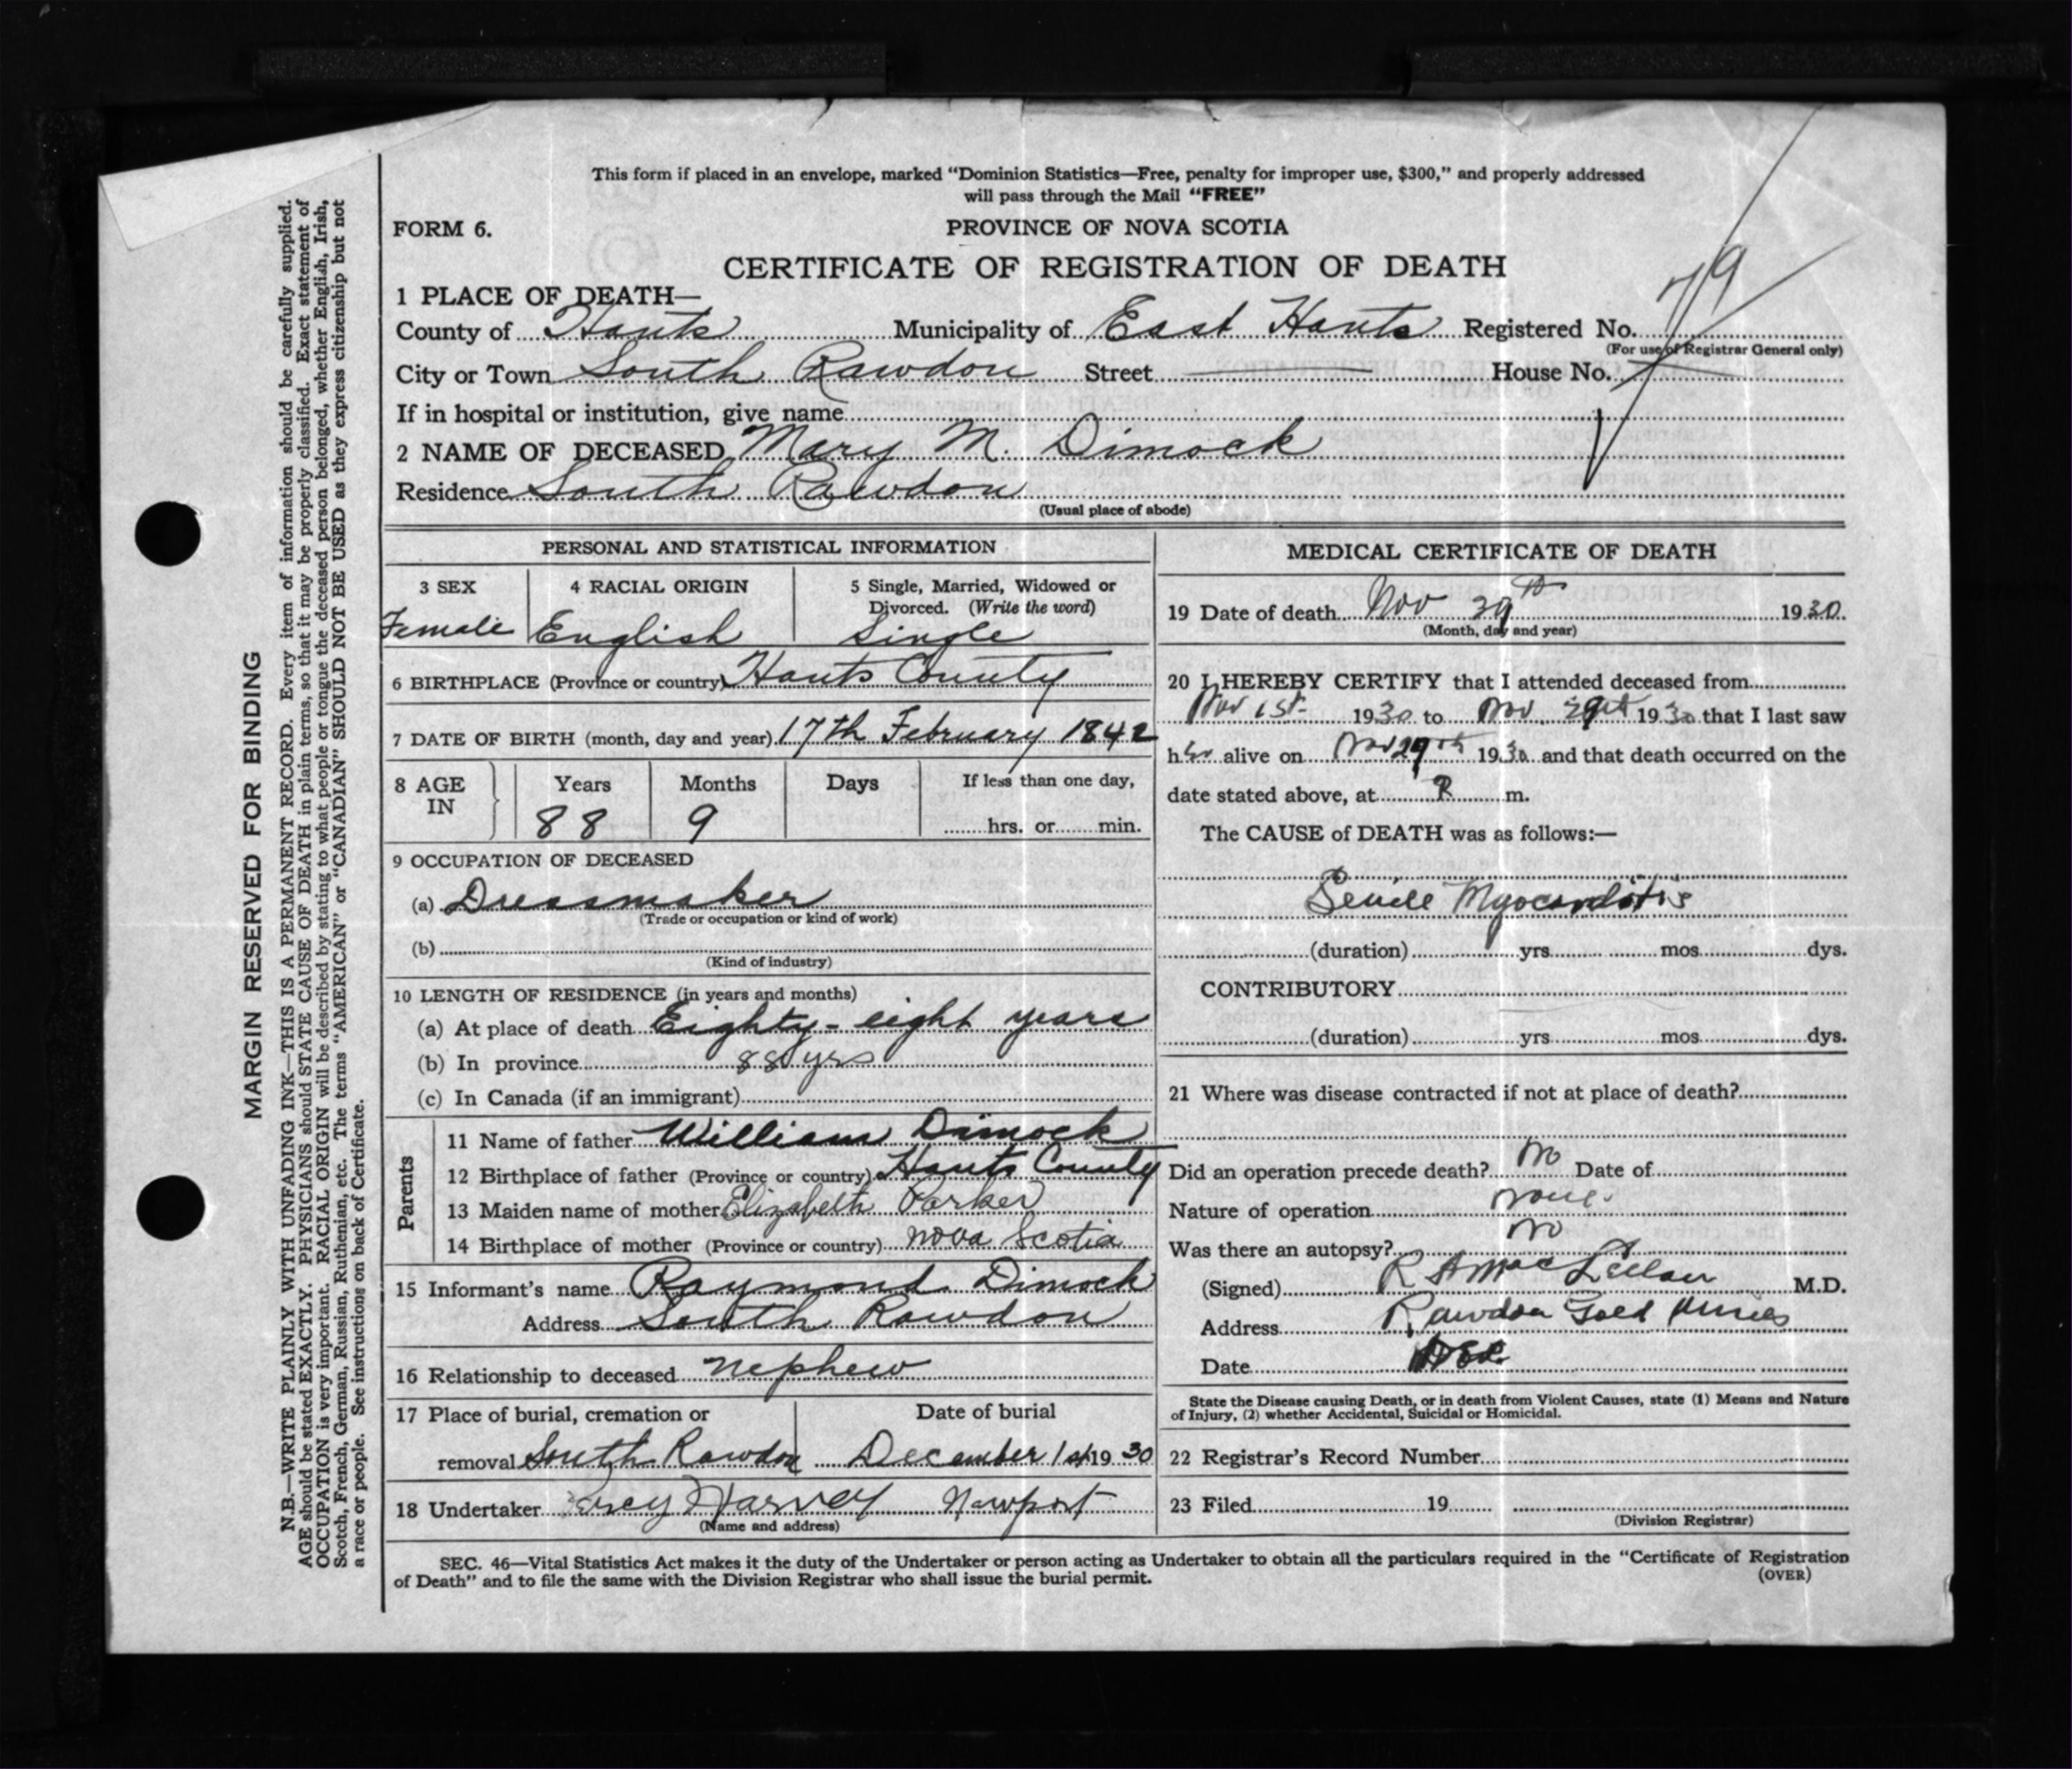 This form if placed in an envelope, marked "Dominion Statistics—Free, penalty for improper use, $300," and properly addressed
will pass through the Mail "FREE"
FORM 6.
PROVINCE OF NOVA SCOTIA
CERTIFICATE OF REGISTRATION OF DEATH
1 PLACE OF DEATH—
County of Hants Municipality of East Hants Registered No.
(For use of Registrar General only)
City or Town South Rawdon Street House No.
If in hospital or institution, give name
2 NAME OF DECEASED Mary M. Dimock
Residence South Rawdon
(Usual place of abode)
PERSONAL AND STATISTICAL INFORMATION
3 SEX 4 RACIAL ORIGIN 5 Single, Married, Widowed or
Divorced. (Write the word)
Female English Single
6 BIRTHPLACE (Province or country) Hants County
7 DATE OF BIRTH (month, day and year) 17th February 1842
8 AGE Years Months Days If less than one day,
IN 88 9 hrs. or min.
9 OCCUPATION OF DECEASED
(a) Dressmaker
(Trade or occupation or kind of work)
(b)
(Kind of industry)
10 LENGTH OF RESIDENCE (in years and months)
(a) At place of death Eighty-eight years
(b) In province 88 yrs
(c) In Canada (if an immigrant)
Parents
11 Name of father William Dimock
12 Birthplace of father (Province or country) Hants County
13 Maiden name of mother Elizabeth Parker
14 Birthplace of mother (Province or country) Nova Scotia
15 Informant's name Raymond Dimock
Address South Rawdon
16 Relationship to deceased Nephew
17 Place of burial, cremation or Date of burial
removal South Rawdon December 1st 1930
18 Undertaker Percy Harvey Newport
(Name and address)
MEDICAL CERTIFICATE OF DEATH
19 Date of death Nov th 1930
(Month, day and year)
20 I HEREBY CERTIFY that I attended deceased from
Nov 1st 1930 to Nov. 1930 that I last saw
her alive on Nov 29th 1930 and that death occurred on the
date stated above, at m.
The CAUSE of DEATH was as follows:—
Senile Myocarditis
(duration) yrs mos dys.
CONTRIBUTORY
(duration) yrs mos dys.
21 Where was disease contracted if not at place of death?
Did an operation precede death? No Date of
Nature of operation none.
Was there an autopsy? No
(Signed) R A MacLellan M.D.
Address Rawdon Gold Mines
Date
State the Disease causing Death, or in death from Violent Causes, state (1) Means and Nature
of Injury, (2) whether Accidental, Suicidal or Homicidal.
22 Registrar's Record Number
23 Filed 19
(Division Registrar)
SEC. 46—Vital Statistics Act makes it the duty of the Undertaker or person acting as Undertaker to obtain all the particulars required in the "Certificate of Registration
of Death" and to file the same with the Division Registrar who shall issue the burial permit.
(OVER)
MARGIN RESERVED FOR BINDING
N.B.—WRITE PLAINLY WITH UNFADING INK—THIS IS A PERMANENT RECORD. Every item of information should be carefully supplied.
AGE should be stated EXACTLY. PHYSICIANS should STATE CAUSE OF DEATH in plain terms, so that it may be properly classified. Exact statement of
OCCUPATION is very important. RACIAL ORIGIN will be described by stating to what people or tongue the deceased person belonged, whether English, Irish,
Scotch, French, German, Russian, Ruthenian, etc. The terms "AMERICAN" or "CANADIAN" SHOULD NOT BE USED as they express citizenship but not
a race or people. See instructions on back of Certificate.